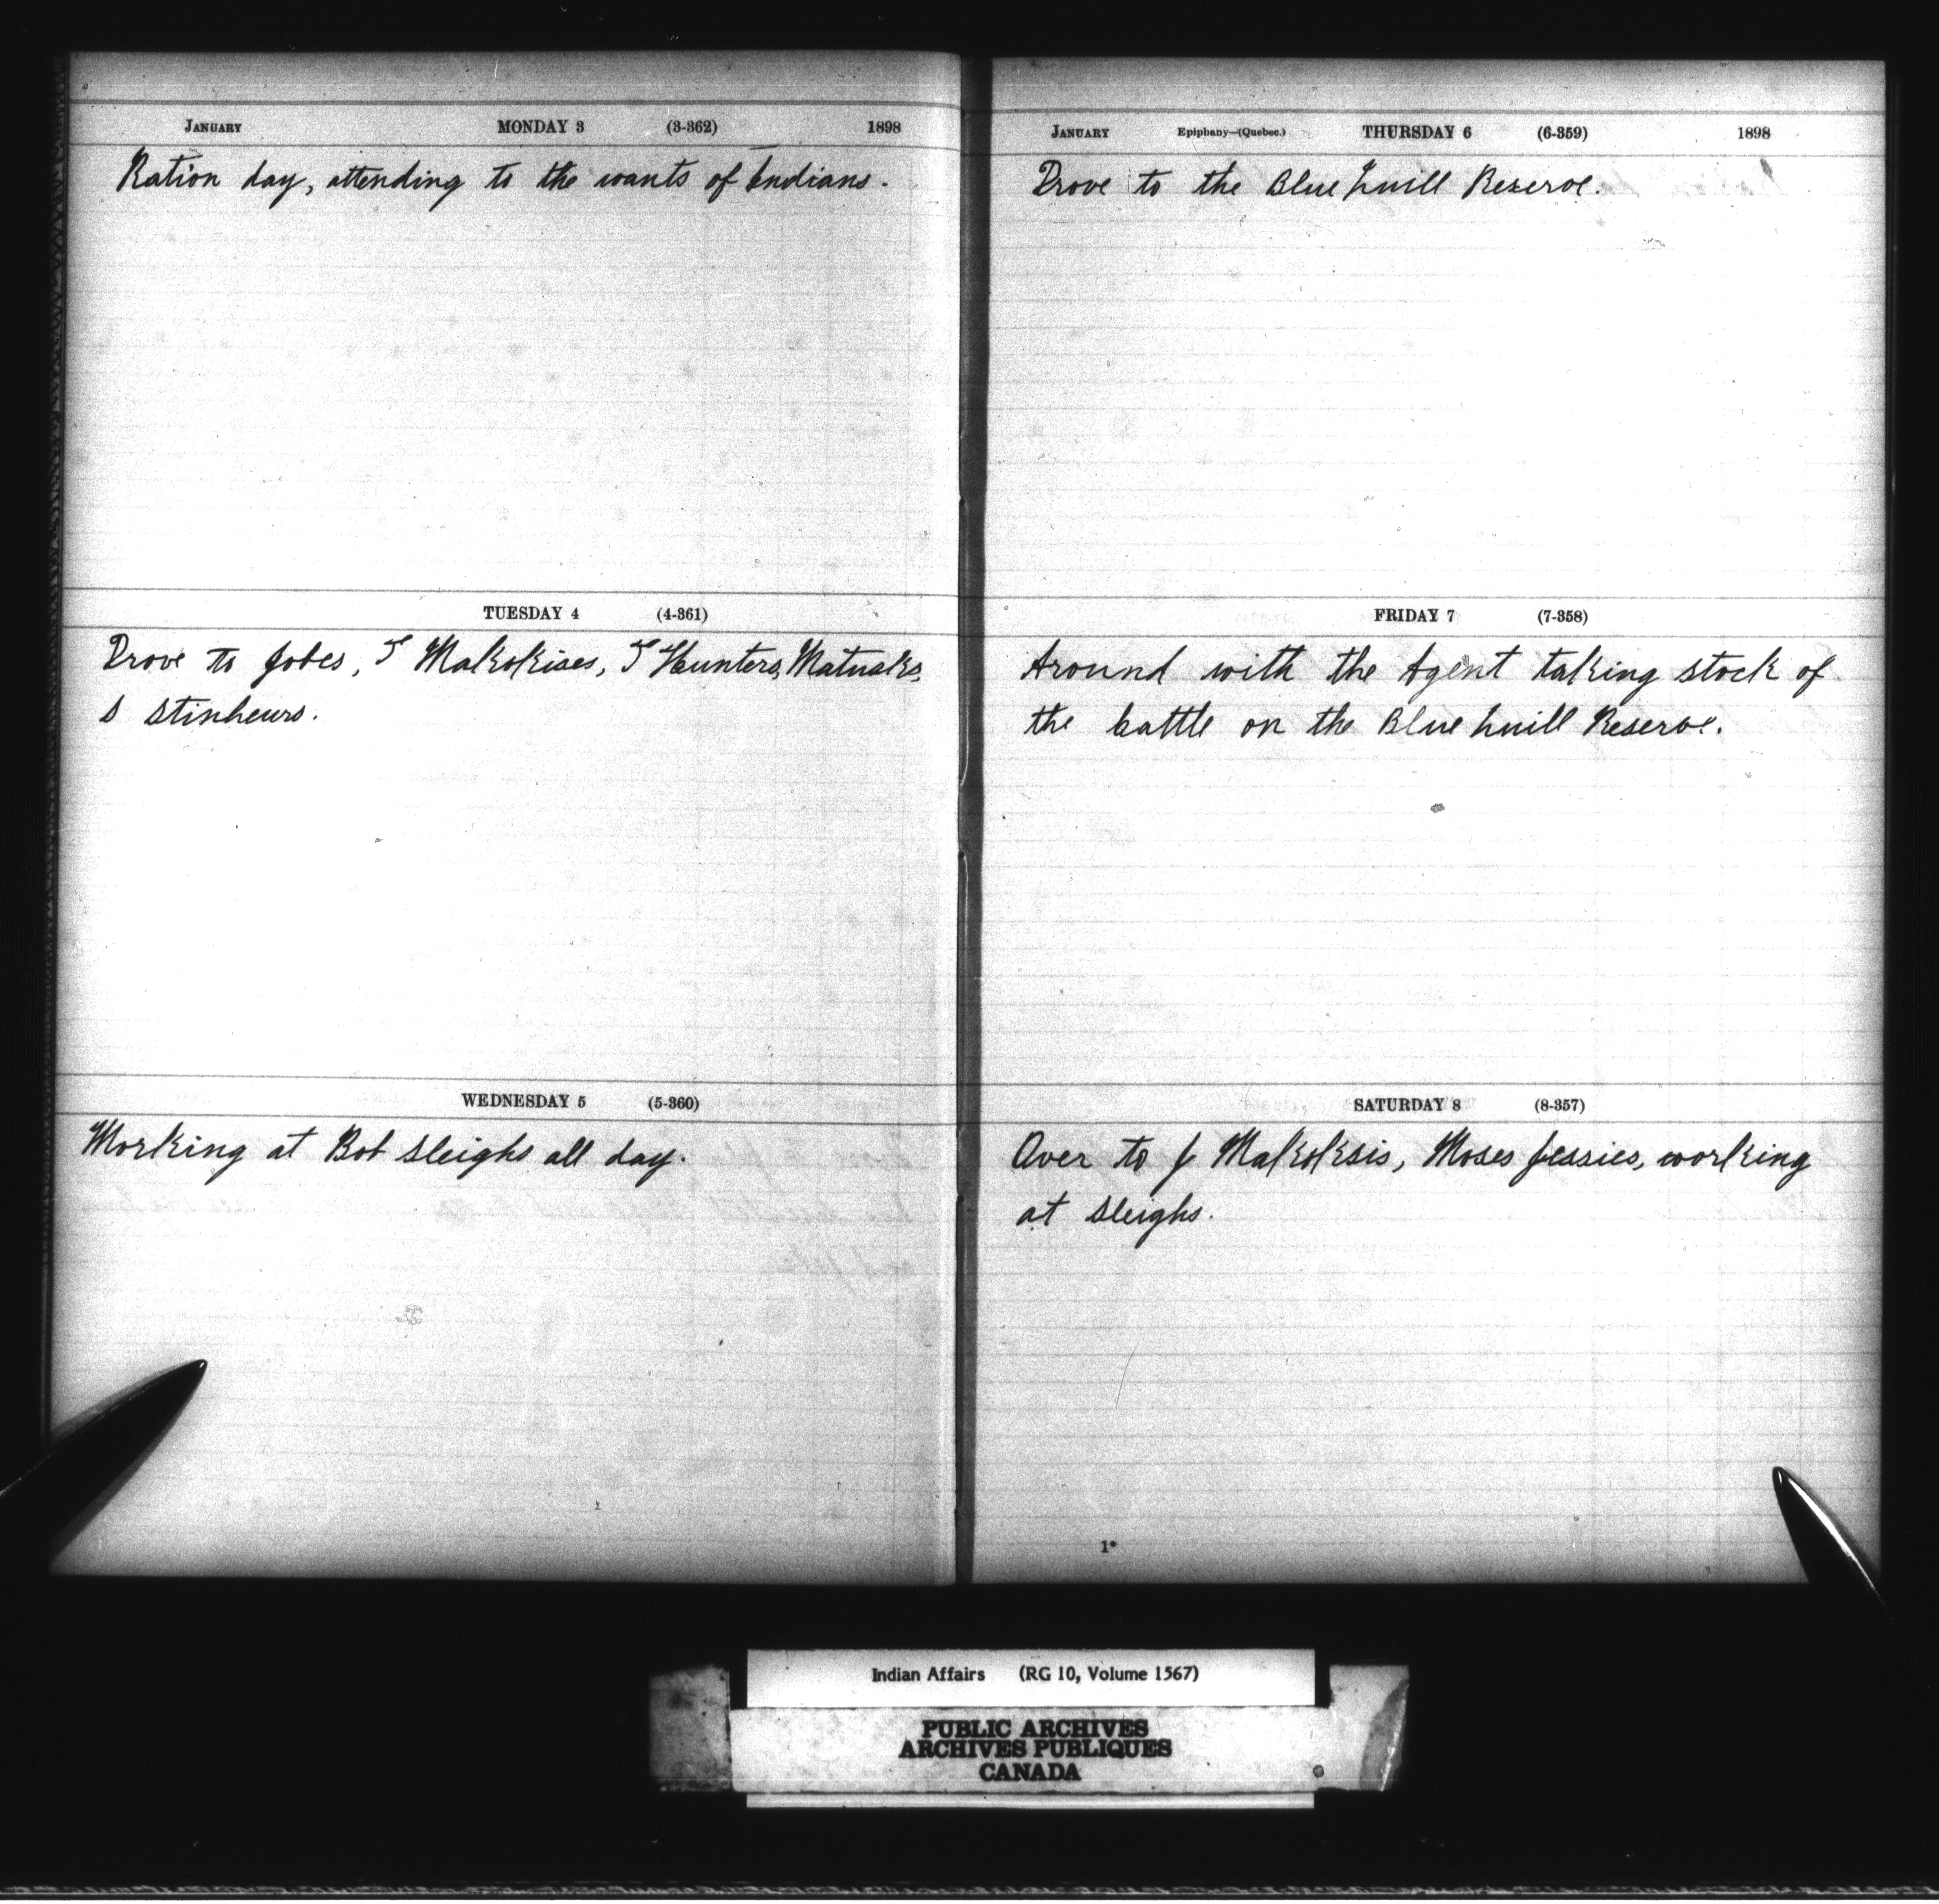 JANUARY MONDAY 3 (3-362) 1898
Ration day, attending to the wants of Indians.
TUESDAY 4 (4-361)
Drove to Jobes, T Makokises, T Hunters, Matuaks,
S Stinheurs.
WEDNESDAY 5 (5-360)
Working at Bob Sleighs all day.
JANUARY Epiphany—(Quebec.) THURSDAY 6 (6-359) 1898
Drove to the Blue Quill Reserve.
FRIDAY 7 (7-358)
Around with the Agent taking stock of
the Cattle on the Blue Quill Reserve.
SATURDAY 8 (8-357)
Over to J Makoksis, Moses Jessies, working
at Sleighs.
1*
Indian Affairs (RG 10, Volume 1567)
PUBLIC ARCHIVES
ARCHIVES PUBLIQUES
CANADA